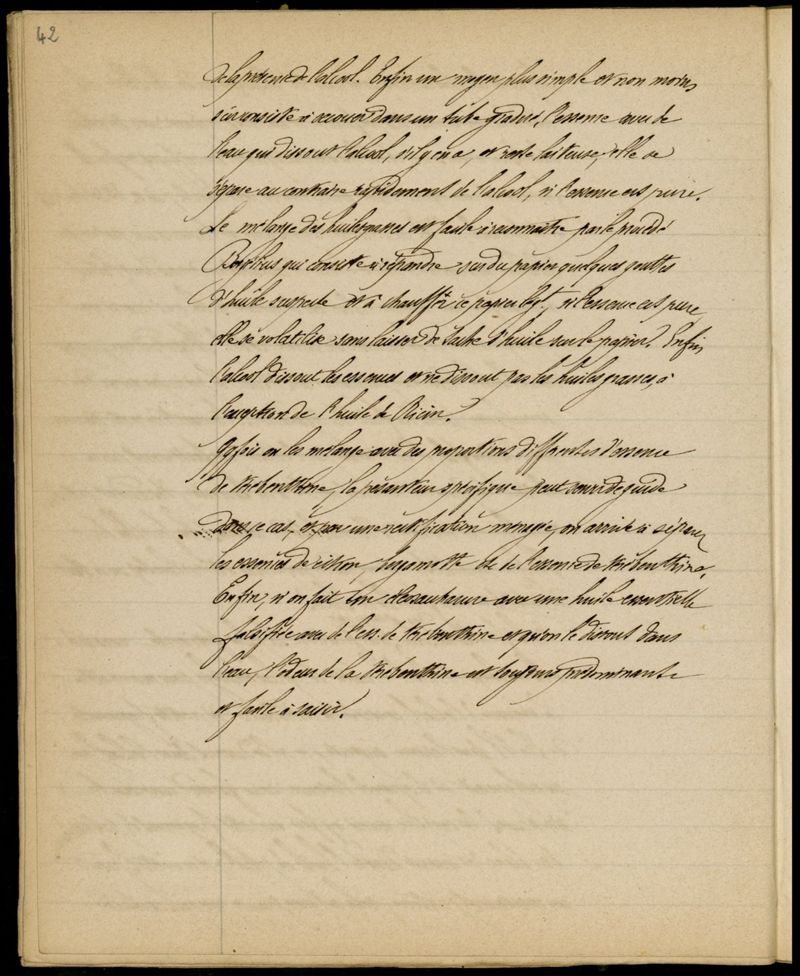 42
de la présence de l'alcool. Enfin un moyen plus simple et non moins
sûr consiste à secouer dans un tube gradué, l'essence avec de
l'eau qui dissout l'alcool, s'il y en a, et reste laiteuse, elle se
sépare au contraire rapidement de l'alcool, si l'essence est pure.
Le mélange des huiles grasses est facile à reconnaître par le procédé
qui consiste à répandre sur du papier quelques gouttes
d'huile suspecte et à chauffer ce papier légt, si l'essence est pure,
elle se volatilise sans laisser de tache d'huile sur le papier. Enfin,
l'alcool dissout les essences et ne dissout pas les huiles grasses, à
l'exception de l'huile de Ricin.
Qqfois on les mélange avec des proportions différentes d'essence
de thérébenthine, la pesanteur spécifique peut servir de guide
dans ce cas, et par une rectification ménagée, on arrive à séparer
les essences de citron, bergamotte &c de l'essence de thérébenthine.
Enfin, si on fait un oleosaccharum avec une huile essentielle
falsifiée avec de l'ess. de thérébenthine et qu'on le dissout dans
l'eau, l'odeur de la thérébenthine est toujours prédominante
et facile à saisir.